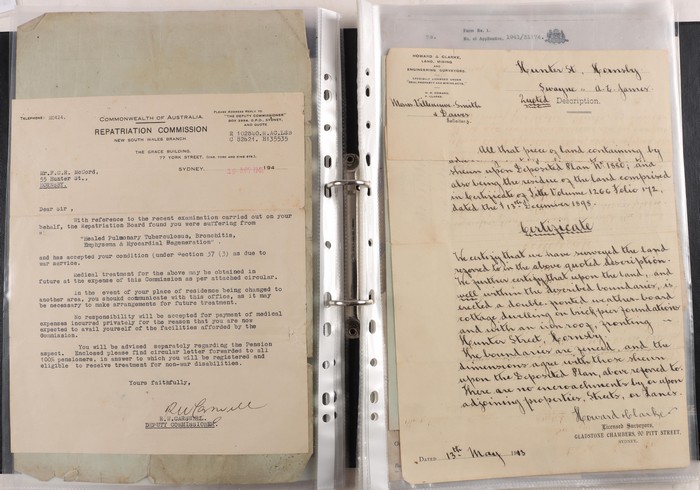 TELEPHONE:
COMMONWEALTH OF AUSTRALIA.
REPATRIATION COMMISSION
NEW SOUTH WALES BRANCH.
THE GRACE BUILDING,
77 YORK STREET,
PLEASE ADDRESS REPLY TO
"THE DEPUTY COMMISSIONER"
SYDNEY,
SYDNEY 194
Mr.F.C.R. McCord,
55 Hunter St.,
HORNSBY.
Dear Sir,
With reference to the recent examination carried out on your
behalf, the Repatriation Board found you were suffering from
"Healed Pulmonary Tuberculosus, Bronchitis,
Emphysema & Myocardial Degeneration".
and has accepted your condition (under Section 37 (3) as due to
war service.
Medical treatment for the above may be obtained in
future at the expense of this Commission as per attached circular.
In the event of your place of residence being changed to
another area, you should communicate with this office, as it may
be necessary to make arrangements for future treatment.
No responsibility will be accepted for payment of medical
expenses incurred privately for the reason that you are now
expected to avail yourself of the facilities afforded by the
Commission.
You will be advised separately regarding the Pension
aspect. Enclosed please find circular letter forwarded to all
100% pensioners, in answer to which you will be registered and
eligible to receive treatment for non-war disabilities.
Yours faithfully,
DEPUTY COMMISSIONER.
No. of Application.
HOWARD J. CLARKE,
LAND, MINING
AND
ENGINEERING SURVEYORS.
Hunter St, Hornsby
Swayne to A. E. James
Description.
& Davies
Solicitors.
All that piece of land containing by
shewn upon Deposited Plan No. 1880; and
also being the residue of the land comprised
in Certificate of Title Volume 1266 Folio 172,
dated the 13th December 1898.
Certificate
We certify that we have surveyed the land
referred to in the above quoted description.
We further certify that upon the land, and
well within the described boundaries, is
erected a double-fronted weather-board
cottage dwelling on brick pier foundations
and with an iron roof, fronting
Hunter Street, Hornsby.
The boundaries are fenced, and the
dimensions agree with those shewn
upon the Deposited Plan, above referred to.
There are no encroachments by or upon
adjoining properties, Streets, or Lanes.
Howard Clarke
Licensed Surveyors,
GLADSTONE CHAMBERS, 90 PITT STREET,
SYDNEY.
DATED 13th May